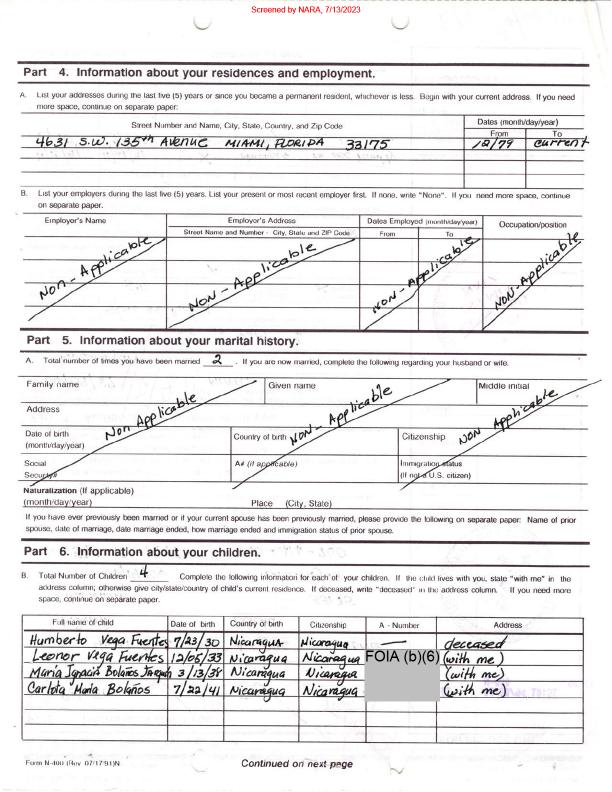 Screened by NARA, 7/13/2023
Part 4. Information about your residences and employment.
A. List your addresses during the last five (5) years or since you became a permanent resident, whichever is less. Begin with your current address. If you need
more space, continue on separate paper:
Street Number and Name, City, State, Country, and Zip Code
Dates (month/day/year)
From To
4631 S.W. 135th AVENUE MIAMI, FLORIDA 33175 12/79 current
B. List your employers during the last five (5) years. List your present or most recent employer first. If none, write "None". If you need more space, continue
on separate paper.
Employer's Name Employer's Address Dates Employed (month/day/year) Occupation/position
Street Name and Number - City, State and ZIP Code From To
Non-Applicable NON-Applicable NON-Applicable NON-Applicable
Part 5. Information about your marital history.
A. Total number of times you have been married 2 . If you are now married, complete the following regarding your husband or wife.
Family name Given name Middle initial
Address
Non Applicable NON-Applicable NON Applicable
Date of birth Country of birth Citizenship
(month/day/year)
Social A# (if applicable) Immigration status
Security# (If not a U.S. citizen)
Naturalization (If applicable)
(month/day/year) Place (City, State)
If you have ever previously been married or if your current spouse has been previously married, please provide the following on separate paper: Name of prior
spouse, date of marriage, date marriage ended, how marriage ended and immigration status of prior spouse.
Part 6. Information about your children.
B. Total Number of Children 4 Complete the following information for each of your children. If the child lives with you, state "with me" in the
address column; otherwise give city/state/country of child's current residence. If deceased, write "deceased" in the address column. If you need more
space, continue on separate paper.
Full name of child Date of birth Country of birth Citizenship A - Number Address
Humberto Vega Fuentes 7/23/30 Nicaragua Nicaragua — deceased
Leonor Vega Fuentes 12/05/33 Nicaragua Nicaragua FOIA (b)(6) (with me)
María Ignacia Bolaños 3/13/38 Nicaragua Nicaragua (with me)
Carlota María Bolaños 7/22/41 Nicaragua Nicaragua (with me)
Form N-400 (Rev. 07/17/91)N Continued on next page